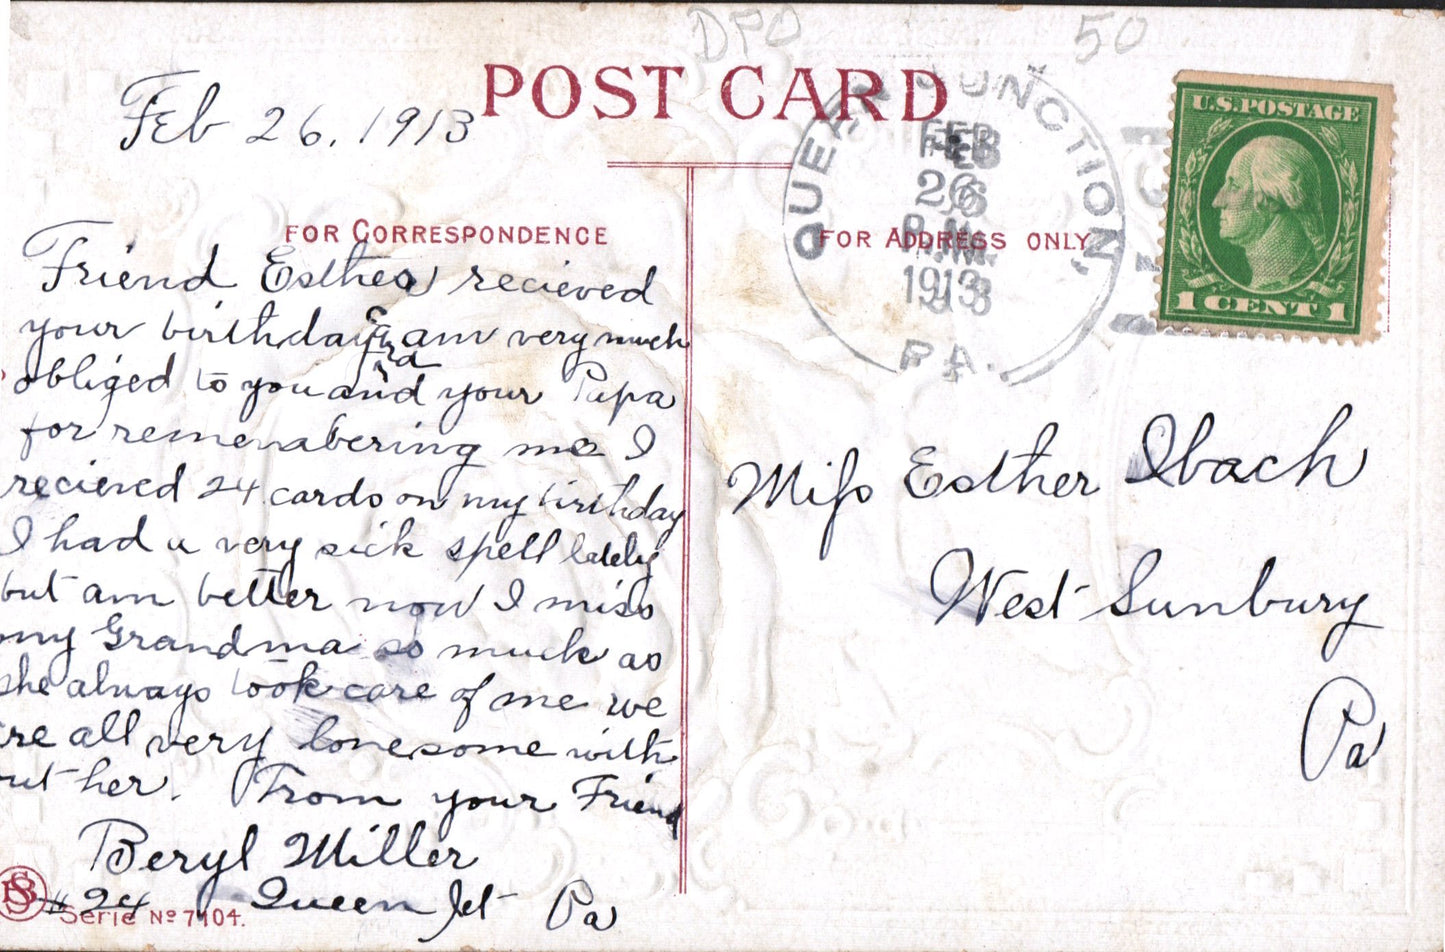 DPO 50
POST CARD
Feb 26, 1913
FOR CORRESPONDENCE
Friend Esther recieved
your birthday card am very much
obliged to you and your Papa
for remembering me I
recieved 24 cards on my birthday
I had a very sick spell lately
but am better now I miss
my Grandma so much as
she always took care of me we
are all very lonesome with
out her. From your Friend
Beryl Miller
#24 Queen Jct Pa
Serie No 7104.
QUEEN JUNCTION,
FEB
26
P.M.
1913
PA.
U.S. POSTAGE
1 CENT 1
FOR ADDRESS ONLY
Miss Esther Ibach
West Sunbury
Pa